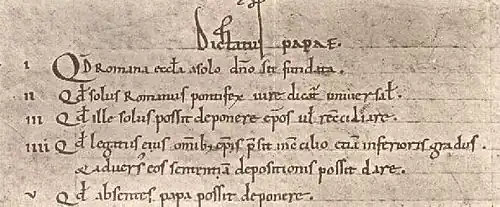 Dictatus papae.
I Qđ Romana eccła a solo dño sit fundata.
II Qđ solus Romanus pontifex iure dicat᷑ universał.
III Qđ ille solus possit deponere ep̄os uł recc̄iliare.
IIII Qđ legatus eius omnib; ep̄is p̄sit in c̄cilio etiā inferioris gradus.
& adversꝰ eos sententiā depositionis possit dare.
V Qđ absentes papa possit deponere.